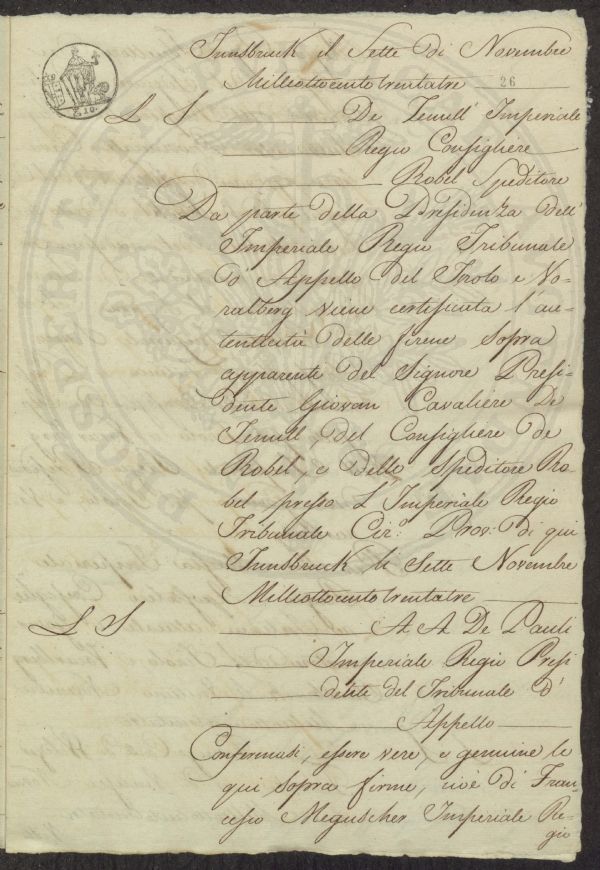 Innsbruck il Sette di Novembre
Milleottocentotrentatre 26
L S De Temll' Imperiale
Regio Consigliere
Robel Speditore
Da parte della Presidenza dell'
Imperiale Regio Tribunale
d' Appello del Tirolo e Vo-
ralberg viene certificata l'au-
tenticità delle firme sopra
apparente del Signore Presi-
dente Giovan Cavaliere De
Temll, del Consigliere de
Robel, e dello Speditore Ro-
bel presso L'Imperiale Regio
Tribunale Cir.º Prov: di qui
Innsbruck li Sette Novembre
Milleottocentotrentatre
L S A A De Pauli
Imperiale Regio Presi
dente del Tribunale d'
Appello
Confermasi, essere vere, e genuine le
qui sopra firme, cioè di Fran-
cesco Meguscher Imperiale Re-
gio